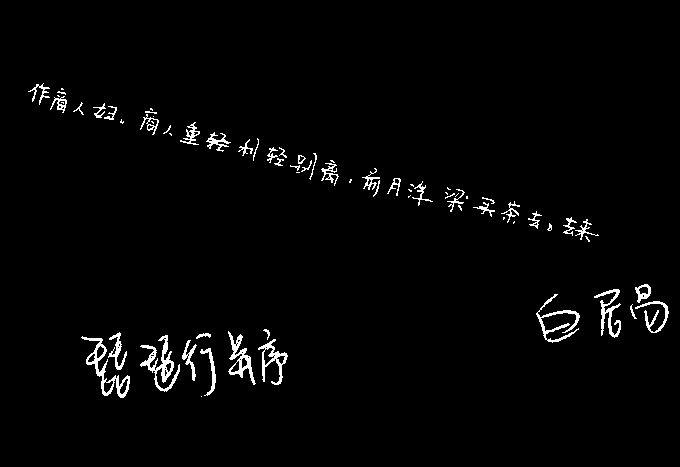 作商人妇。商人重轻利轻别离，前月浮梁买茶去。去来
白居易
琵琶行并序